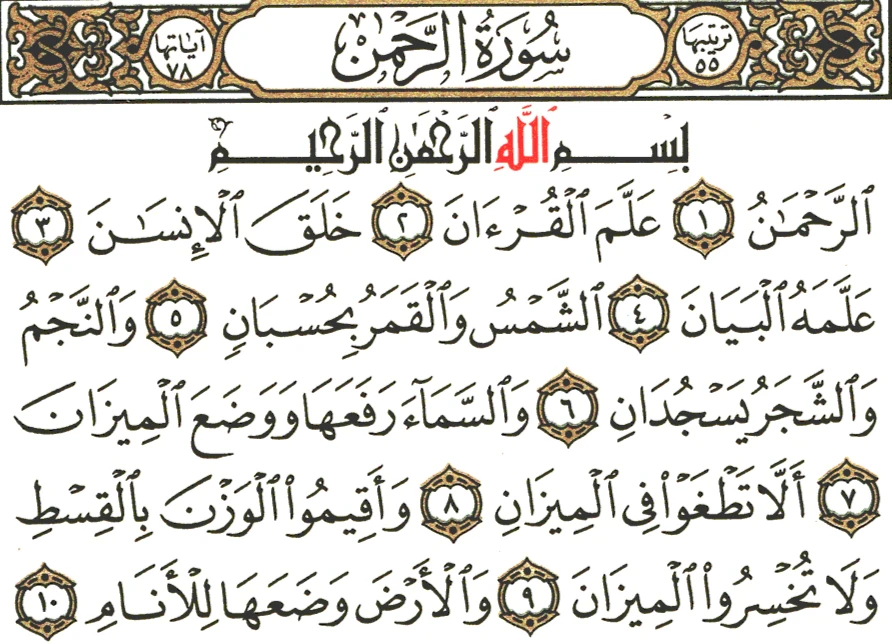 ترتيبها ٥٥ سُورَةُ الرَّحْمَٰن آياتها ٧٨
بِسْمِ ٱللَّهِ ٱلرَّحْمَٰنِ ٱلرَّحِيمِ
ٱلرَّحْمَٰنُ ١ عَلَّمَ ٱلْقُرْءَانَ ٢ خَلَقَ ٱلْإِنسَٰنَ ٣
عَلَّمَهُ ٱلْبَيَانَ ٤ ٱلشَّمْسُ وَٱلْقَمَرُ بِحُسْبَانٍ ٥ وَٱلنَّجْمُ
وَٱلشَّجَرُ يَسْجُدَانِ ٦ وَٱلسَّمَآءَ رَفَعَهَا وَوَضَعَ ٱلْمِيزَانَ
٧ أَلَّا تَطْغَوْا۟ فِى ٱلْمِيزَانِ ٨ وَأَقِيمُوا۟ ٱلْوَزْنَ بِٱلْقِسْطِ
وَلَا تُخْسِرُوا۟ ٱلْمِيزَانَ ٩ وَٱلْأَرْضَ وَضَعَهَا لِلْأَنَامِ ١٠